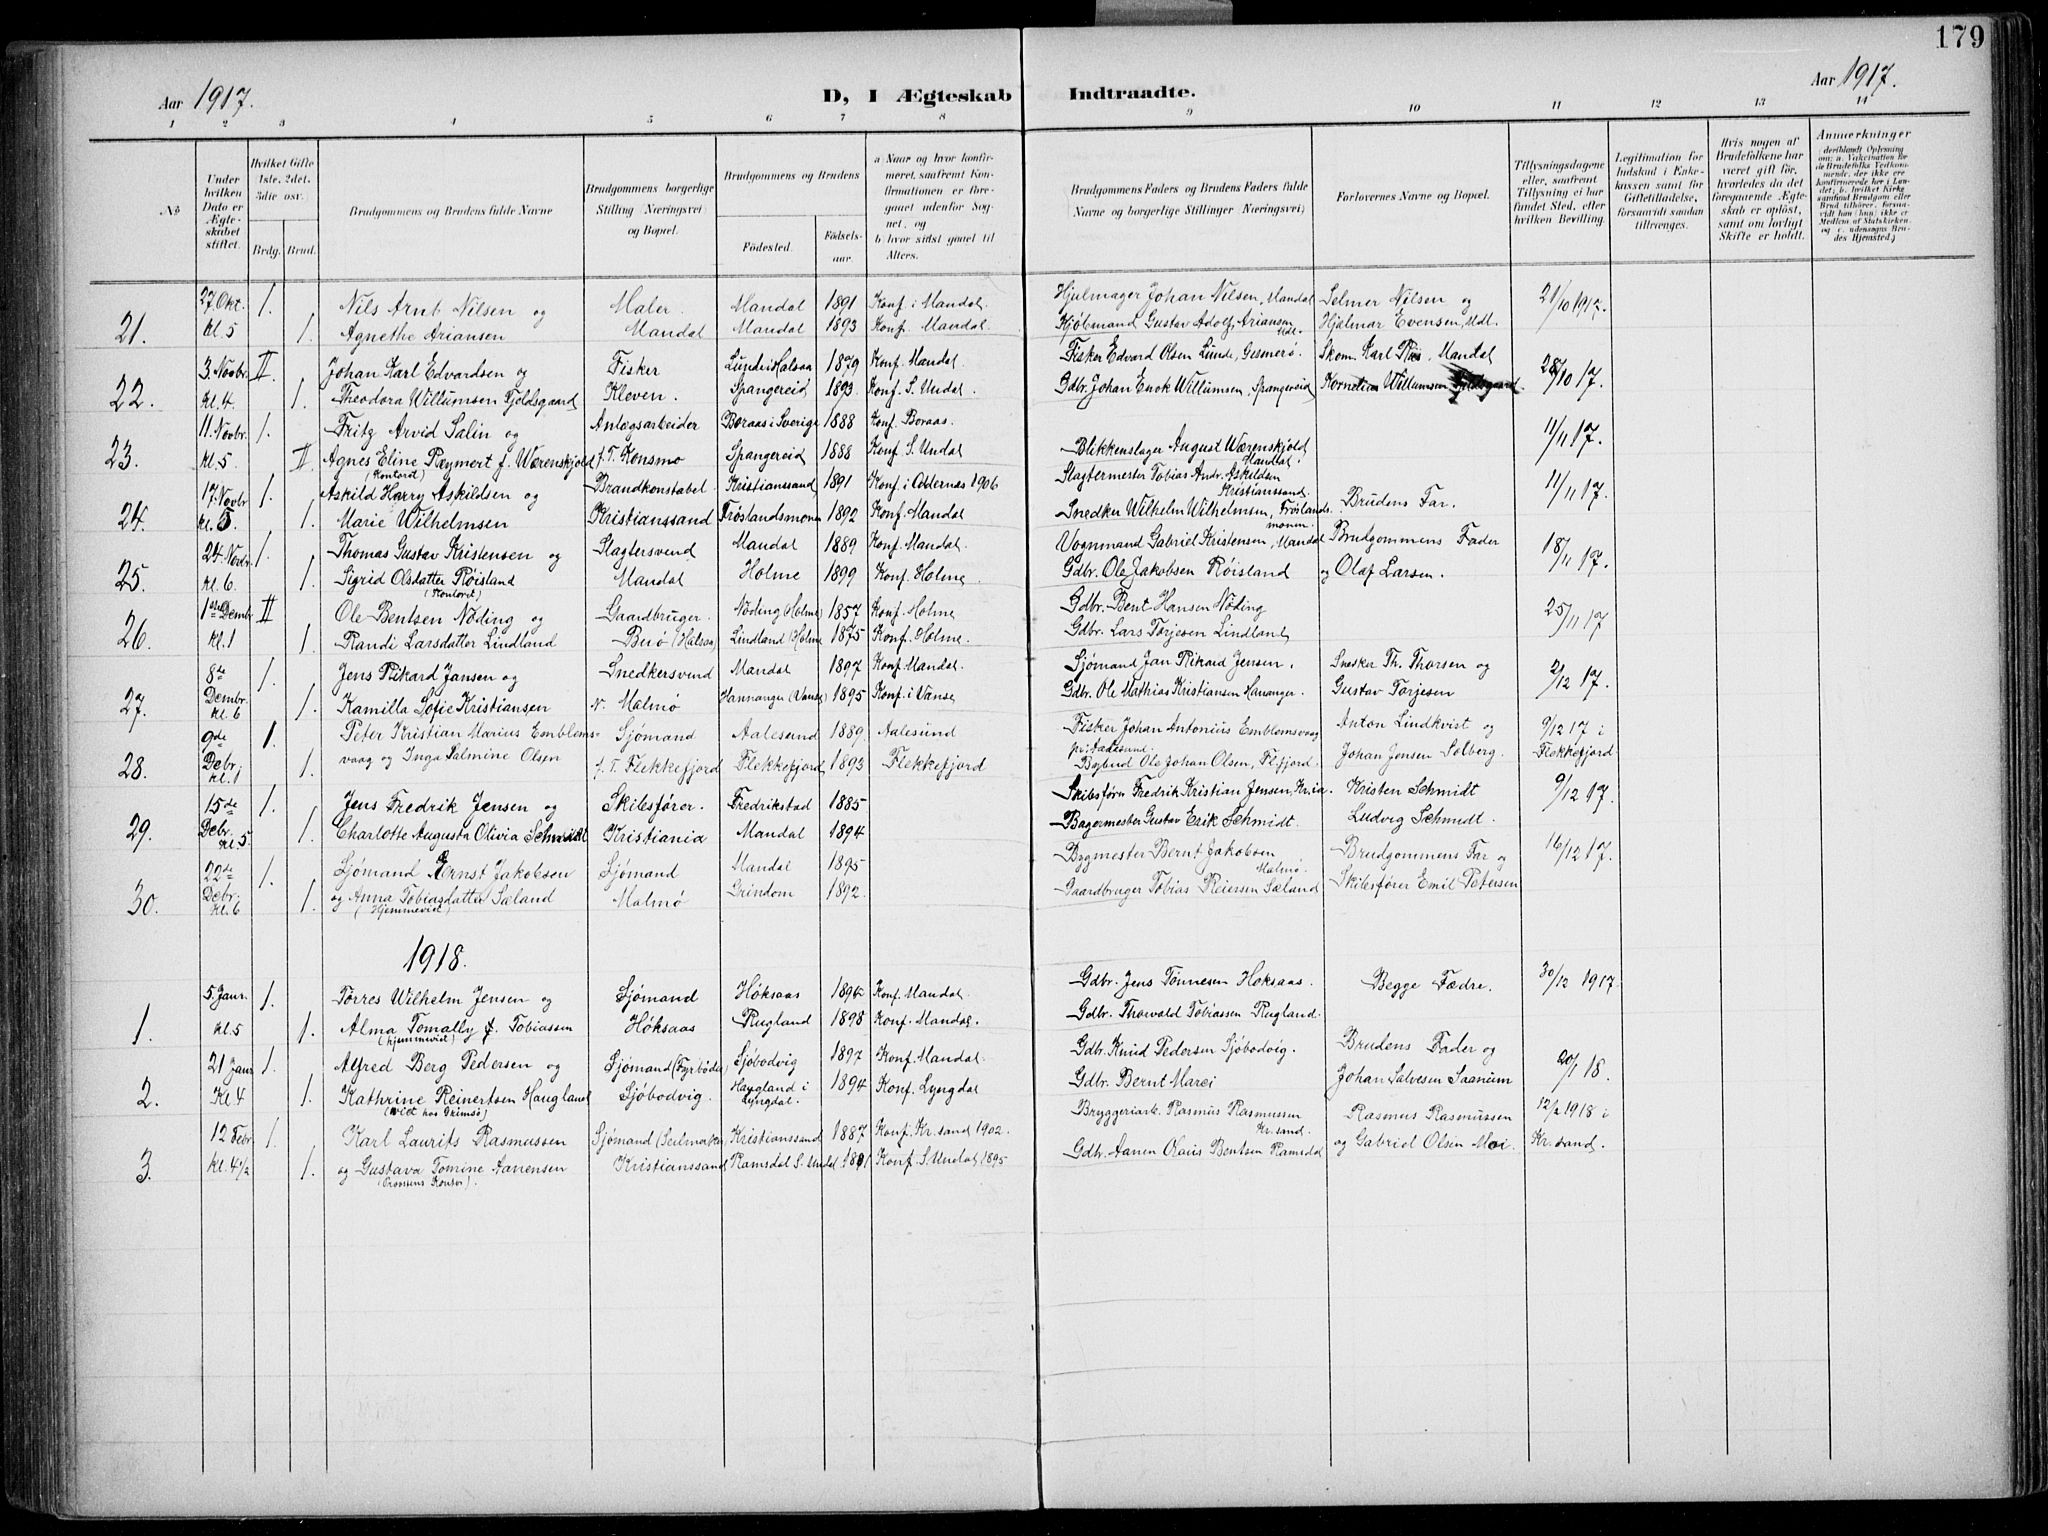 179
Aar 1917.
D, I Ægteskab Indtraadte.
Aar 1917.
1 2 3 4 5 6 7 8 9 10 11 12 13 14
No
Under hvilken Dato er Ægteskabet stiftet.
Hvilket Gifte 1ste, 2det, 3die osv.
Brdg. Brud.
Brudgommens og Brudens fulde Navne
Brudgommens borgerlige Stilling (Næringsvei) og Bopæl.
Brudgommens og Brudens
Fødested. Fødselsaar.
a. Naar og hvor konfirmeret, saafremt Konfirmationen er foregaaet udenfor Sognet, og
b. hvor sidst gaaet til Alters.
Brudgommens Faders og Brudens Faders fulde Navne og borgerlige Stillinger (Næringsvei)
Forlovernes Navne og Bopæl.
Tillysningsdagene eller, saafremt Tillysning ei har fundet Sted, efter hvilken Bevilling.
Legitimation for Indskud i Enkekassen samt for Giftetilladelse, forsaavidt saadan tiltrænges.
Hvis nogen af Brudefolkene har været gift før, hvorledes da det foregaaende Ægteskab er opløst, samt om lovligt Skifte er holdt.
Anmerkninger
(deriblandt Oplysning om: a. Vakcination for de Brudefolks Vedkommende, der ikke ere konfirmerede her i Landet; b. hvilket Kirkesamfund Brudgom eller Brud tilhører, forsaavidt han (hun) ikke er Medlem af Statskirken, og c. udensogns Brudes Hjemsted.)
27 Okt. 1. Nils Arnt Nilsen og Maler Mandal 1891 Konf. i Mandal. Hjulmager Johan Nilsen, Mandal Selmer Nilsen og 21/10 1917.
21. kl. 5 1. Agnethe Ariansen Mandal Mandal 1893 Konf. Mandal. Kjøbmand Gustav Adolf Ariansen Mdl. Hjalmar Evensen, Mdl.
3. Novbr. II. Johan Karl Edvardsen og Fisker Lund i Halsaa 1879 Konf. Mandal. Fisker Edvard Olsen Lunde, Gesmerø. Skom. Karl Riis, Mandal 28/10 17.
22. kl. 4. 1. Theodora Willumsen Fjeldsgaard Kleven. Spangereid 1893 Konf. S. Undal. Gdbr. Johan Enok Willumsen, Spangereid Kornelius Willumsen
11. Novbr. 1. Fritz Arvid Salin og Anlægsarbeider Boraas i Sverige 1888 Konf. Boraas. 11/11 17.
23. kl. 5 II Agnes Eline Reymert f. Wærenskjold f. T. Konsmo Spangereid 1888 Konf. S. Undal Blikkenslager August Wærenskjold Mandal.
(Kontord)
17. Novbr. 1. Askild Harry Askildsen og Brandkonstabel Kristianssand 1891 Konf. i Oddernes 1906 Slagtermester Tobias Andr. Askildsen Kristianssand. 11/11 17.
24. kl. 5. 1. Marie Wilhelmsen Kristianssand Frøslandsmonen 1892 Konf. Mandal Snedker Wilhelm Wilhelmsen, Frøslandsmonen Brudens Far.
24. Novbr. 1. Thomas Gustav Kristensen og Slagtersvend Mandal 1889 Konf. Mandal. Vognmand Gabriel Kristensen, Mandal Brudgommens Fader 18/11 17.
25. kl. 6. 1. Sigrid Olsdatter Røisland Mandal Holme 1899 Konf. Holme. Gdbr. Ole Jakobsen Røisland og Olaf Larsen.
(Kontoret)
1ste Dembr. II Ole Bentsen Nøding og Gaardbruger. Nøding (Holme) 1857 Konf. Holme Gdbr. Bent Hansen Nøding 25/11 17
26. kl. 1 1. Randi Larsdatter Lindland Buø (Halsaa) Lindland (Holme 1875 Konf. Holme. Gdbr. Lars Torjesen Lindland
8de 1. Jens Rikard Jansen og Snedkersvend Mandal 1897 Konf. Mandal. Sjømand Jan Rikard Jensen. Snedker Th. Thorsen og 2/12 17.
27. Dembr. kl. 6 1. Kamilla Sofie Kristiansen N. Malmø Hannanger (Vanse) 1895 Konf. i Vanse Gdbr. Ole Mathias Kristiansen Hananger. Gustav Torjesen
9de 1. Peter Kristian Marius Emblems- Sjømand Aalesund 1889. Aalesund Fisker Johan Antonius Emblemsvaag pr. Aalesund. Anton Lindkvist og 9/12 17 i
28. Debr. kl. 1 1. vaag og Inga Salmine Olsen f. T. Flekkefjord Flekkefjord 1893 Flekkefjord Bybud Ole Johan Olsen, Fl.fjord. Johan Jensen Solberg. Flekkefjord
15de 1. Jens Fredrik Jensen og Skibsfører. Fredrikstad 1885 Skibsfører Fredrik Kristian Jensen, Kr.ia. Kristen Schmidt 9/12 17.
29. Debr. kl. 5. 1. Charlotte Augusta Olivia Schmidt Kristiania Mandal 1894 Bagermester Gustav Erik Schmidt. Ludvig Schmidt.
22de 1. Sjømand Ernst Jakobsen Sjømand Mandal 1895 Bygmester Bernt Jakobsen Malmø. Brudgommens Far og 16/12 17.
30. Debr. kl. 6 1. og Anna Tobiasdatter Sæland Malmø Grindem 1892. Gaardbruger Tobias Reiersen Sæland Skibsfører Emil Petersen
(Hjemmeviet)
1918.
5. Janr. 1. Torres Wilhelm Jensen og Sjømand Høksaas 1894 Konf. Mandal. Gdbr. Jens Tønnesen Høksaas. Begge Fædre. 30/12 1917.
1. kl. 5 1. Alma Tomally f. Tobiassen Høksaas Rugland 1898 Konf. Mandal. Gdbr. Thorvald Tobiassen Rugland.
(hjemmeviet)
21 Janr 1. Alfred Berg Pedersen og Sjømand (Fyrbøder) Sjøbodvig 1897 Konf. Mandal. Gdbr. Knud Pedersen Sjøbodvig. Brudens Fader og 20/1 18.
2. Kl. 4 1. Kathrine Reinertsen Haugland Sjøbodvig. Haugland i Lyngdal. 1894 Konf. Lyngdal Gdbr. Bernt Johan Salvesen Saanum
(Viet hos Grimsø)
12 Febr. 1. Karl Laurits Rasmussen Sjømand (Seilmaker) Kristianssand 1887 Konf. Kr.sand 1902. Bryggeriarb. Rasmus Rasmussen Kr.sand. Rasmus Rasmussen 12/2 1918 i
3. kl. 4 1/2 1. og Gustava Tomine Aanensen Kristianssand Ramsdal S. Undal 1881 Konf. S. Undal 1895 Gdbr. Aanen Olaus Bentsen Ramsdal og Gabriel Olsen Moi. Kr.sand.